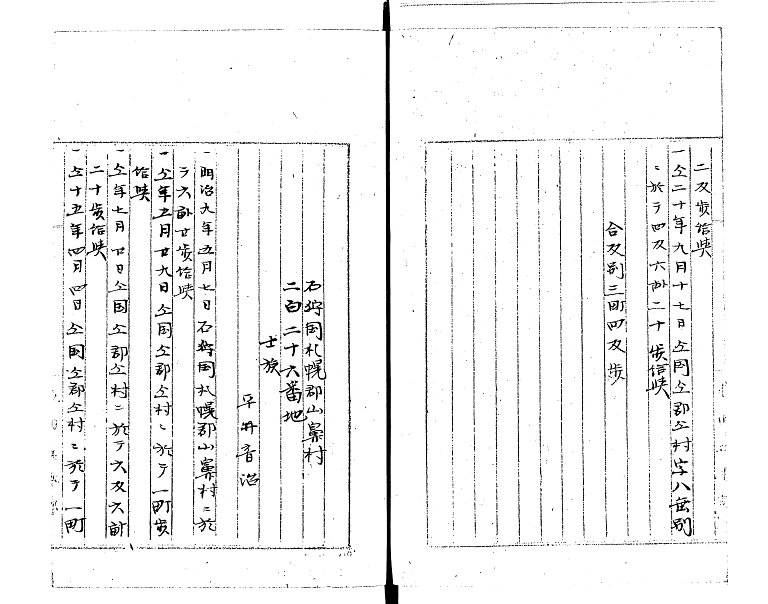 二反歩給与
一仝二十年九月十七日仝国仝郡仝村字八垂別
ニ於テ四反六畝二十歩給与
合反別三町四反歩
石狩国札幌郡山鼻村
二百二十六番地
士族
平井音治
一明治九年五月七日石狩国札幌郡山鼻村ニ於
テ六畝廿歩給与
一仝年五月廿九日仝国仝郡仝村ニ於テ一町歩
給与
一仝年七月廿日仝国仝郡仝村ニ於テ六反六畝
二十歩給与
一仝十五年四月四日仝国仝郡仝村ニ於テ一町